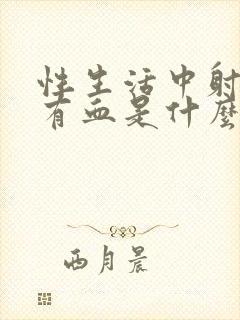 性生活中射
有血是什麼
西月晨